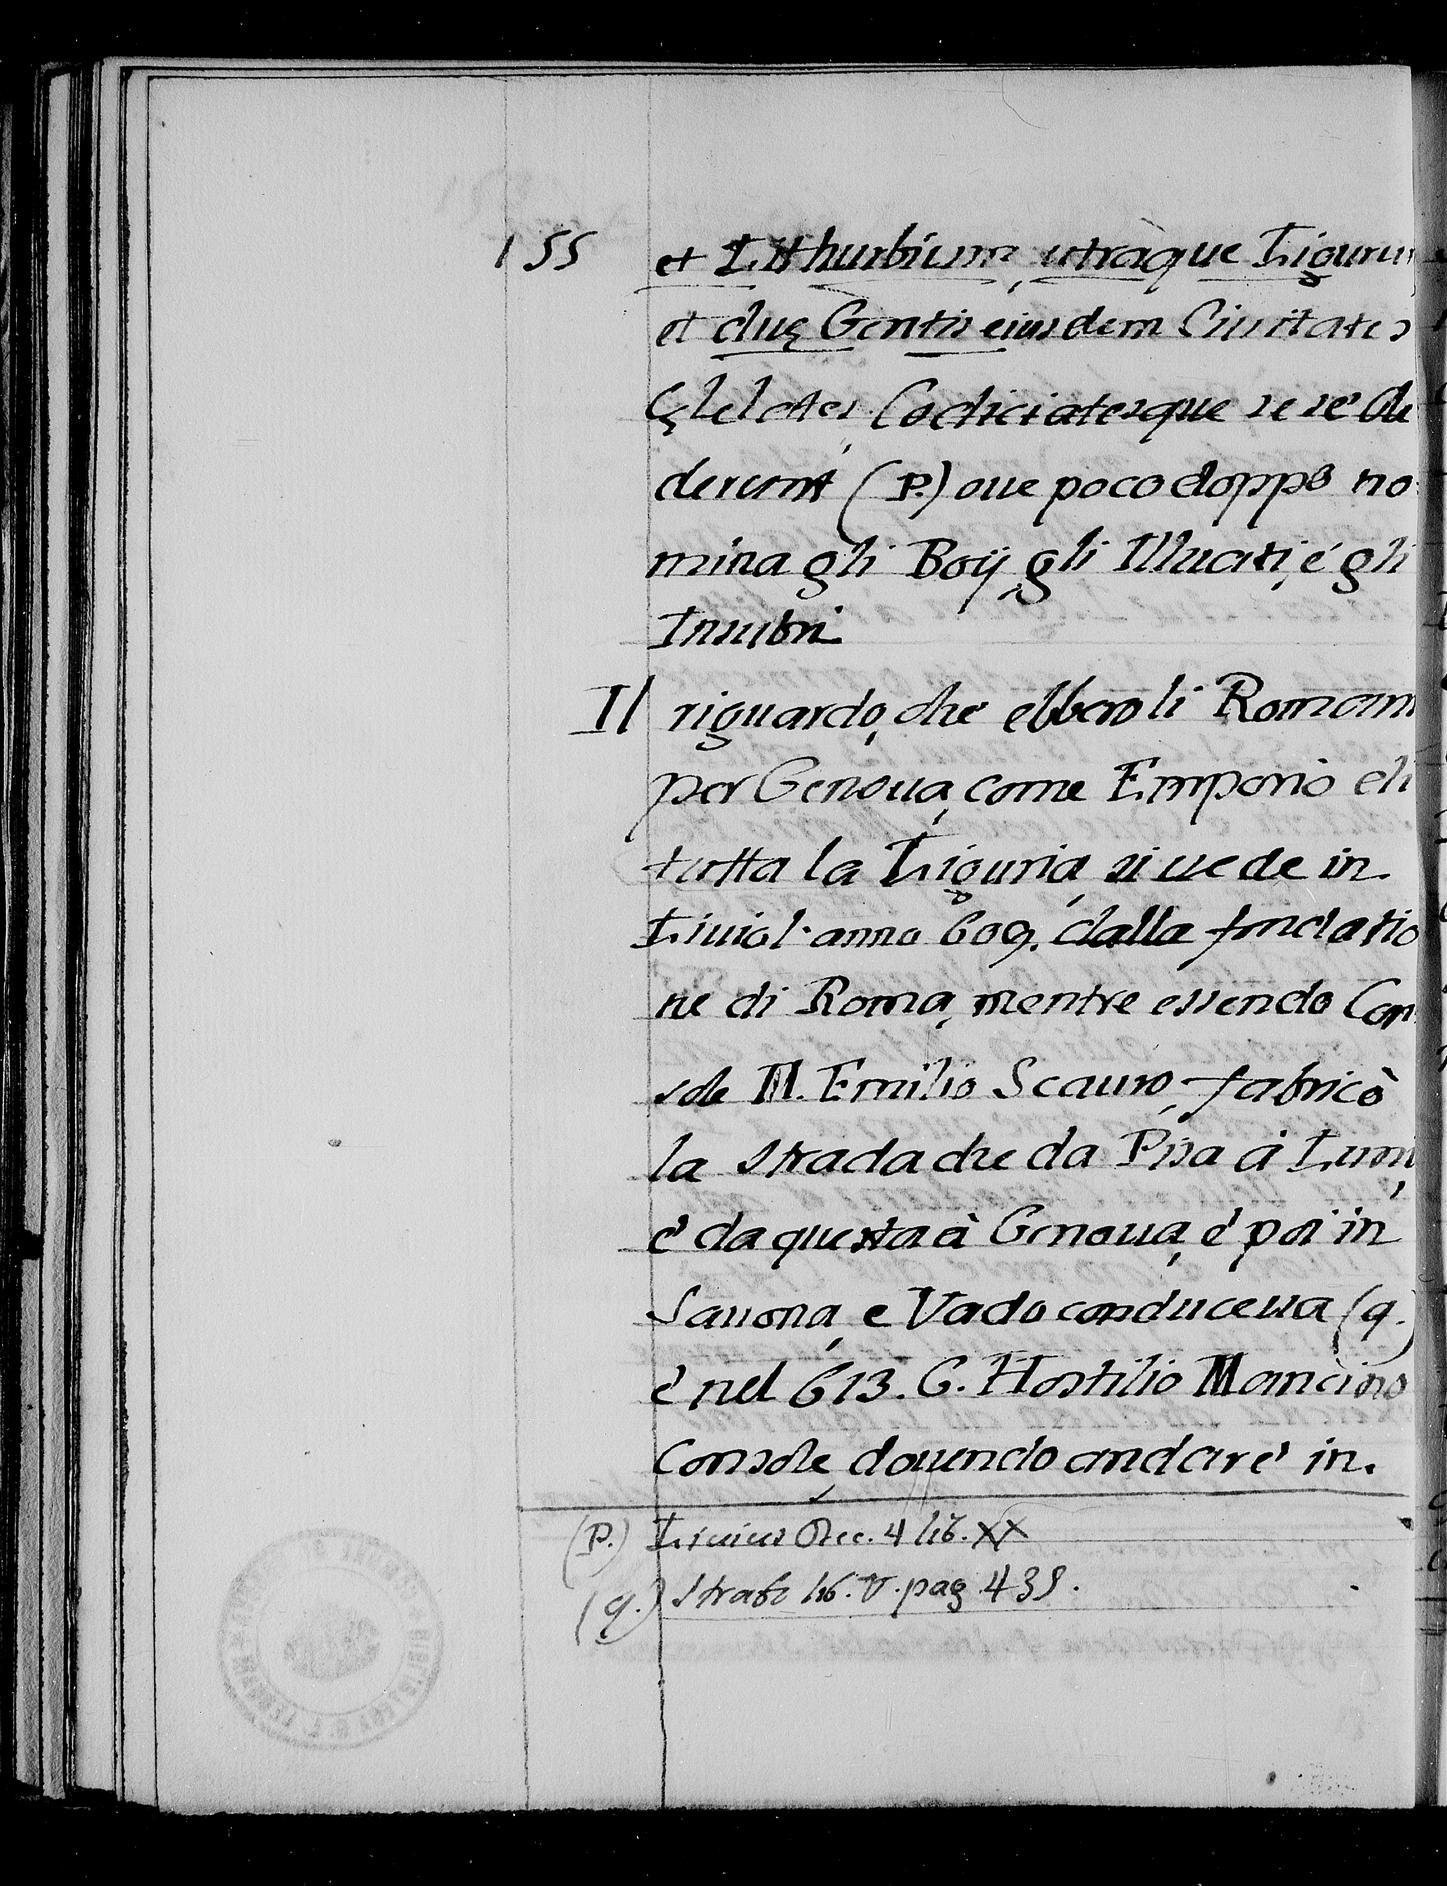 155
et Lithurbium, utràque Ligurum
et duę Gentis eiusdem Ciuitates
Çleletes, Cediciatesque se se de
derunt (P.) oue poco doppo no
mina gli Boÿ, gli Illuati, é gli
Insubri
Il riguardo, che ebbero li Romani
per Genoua, come Emporio di
tutta la Liguria, si uede in
Liuio l'anno 609. dalla fondatio
ne di Roma, mentre essendo Con
sole M. Emilio Scauro, fabricò
la strada che da Pisa à Luni,
è da questa à Genoua, è poi in
Sauona, e Vado conduceua (q.)
è nel 613. C. Hostilio Mancino
Console, douendo andare in
(P.) Liuius Dec. 4 lib. XX
(q.) Strab: lib. V. pag 439.